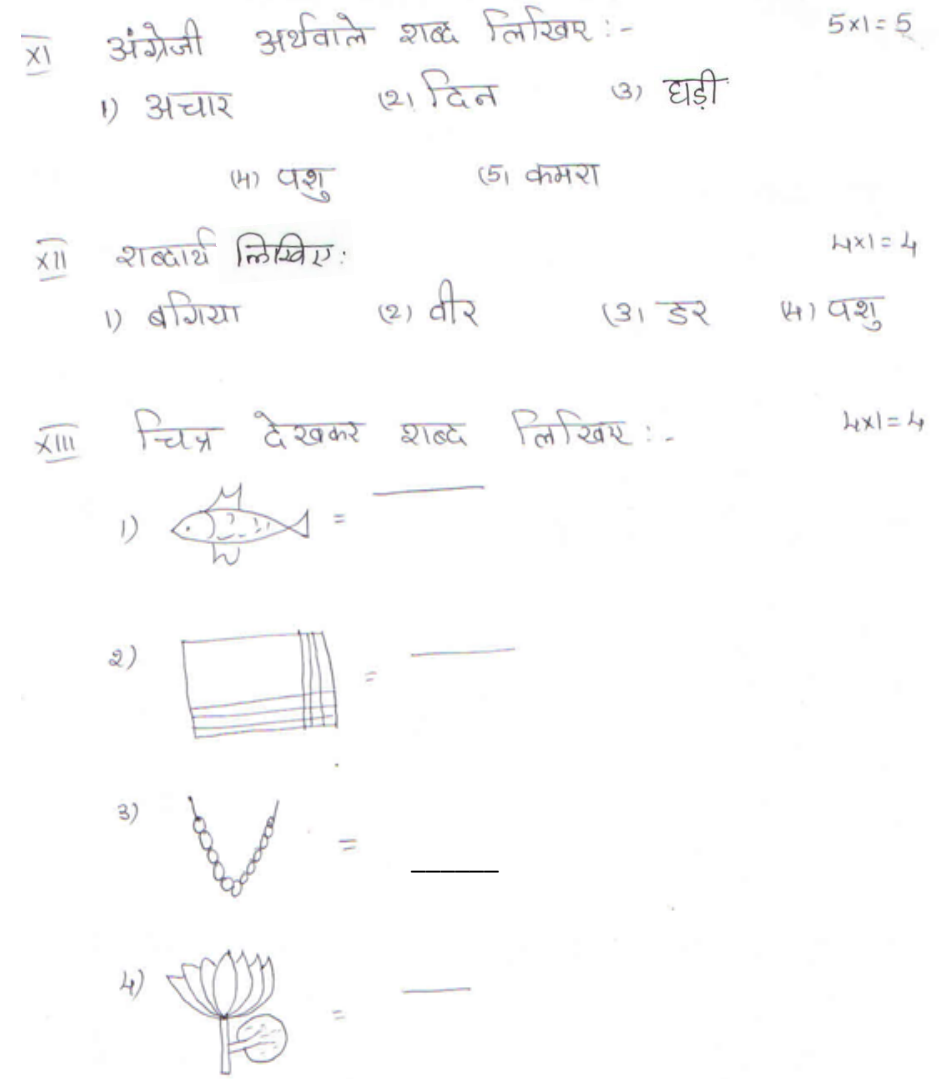 XI अंग्रेजी अर्थवाले शब्द लिखिए :- 5×1=5
1) अचार (2) दिन (3) घड़ी
(4) पशु (5) कमरा
XII शब्दार्थ लिखिए: 4×1=4
1) बगिया (2) वीर (3) डर (4) पशु
XIII चित्र देखकर शब्द लिखिए :- 4×1=4
1) =
2) =
3) =
4) =